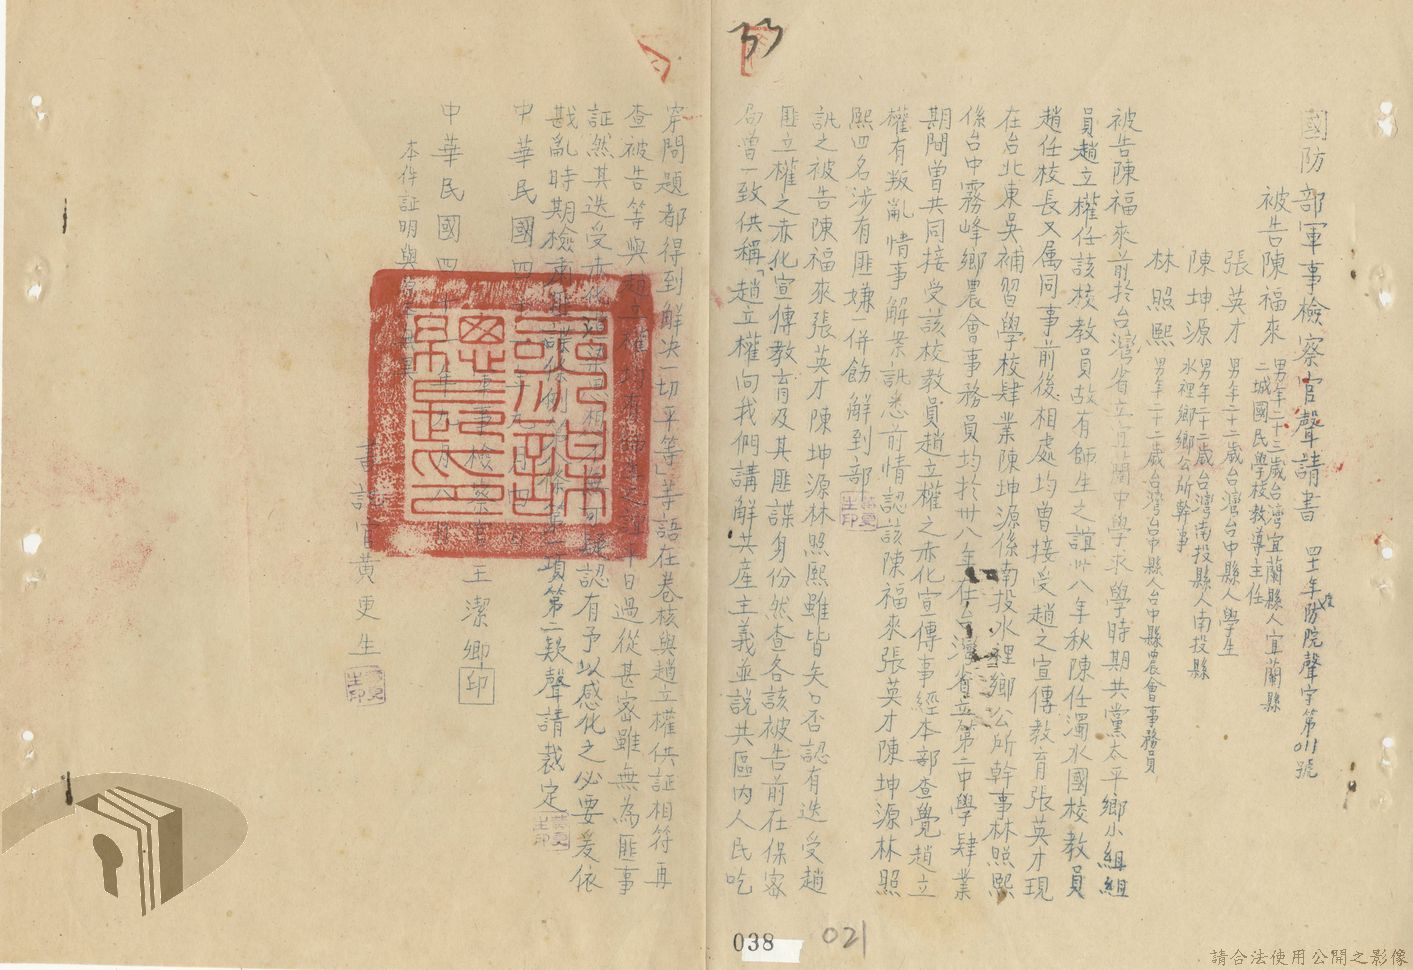 33
國防部軍事檢察官聲請書 四十一年防院聲字第011號
被告陳福來 男年二十三歲台灣宜蘭縣人宜蘭縣二城國民學校教導主任
張英才 男年二十二歲台灣台中縣人學生
陳坤源 男年二十二歲台灣南投縣人南投縣水裡鄉鄉公所幹事
林照熙 男年二十二歲台灣台中縣人台中縣農會事務員
被告陳福來前於台灣省立宜蘭中學求學時期共黨太平鄉小組組
員趙立權任該校教員故有師生之誼卅八年秋陳任濁水國校教員
趙任校長又属同事前後相處均曾接受趙之宣傳教育張英才現
在台北東吳補習學校肆業陳坤源係南投水裡鄉公所幹事林照熙
係台中霧峰鄉農會事務員均於卅八年在台灣省立第二中學肆業
期間曾共同接受該校教員趙立權之赤化宣傳事經本部查覺趙立
權有叛亂情事解案訊悉前情認該陳福來張英才陳坤源林照
熙四名涉有匪嫌一併飭解到部
訊之被告陳福來張英才陳坤源林照熙雖皆矢口否認有迭受趙
匪立權之赤化宣傳教育及其匪諜身份然查各該被告前在保密
局曾一致供稱「趙立權向我們講解共產主義並説共區内人民吃
穿問題都得到解決一切平等」等語在卷核與趙立權供証相符再
查被告等與趙立權均有師生之誼十日過從甚密雖無為匪事
証然其迭受赤化 認有予以感化之必要爰依
戡亂時期檢肅匪諜條例第八條第一項第二款聲請裁定
中華民國四十一年九月四日
軍事檢察官王潔卿 印
中華民國四十一年九月八日
本件証明與原本無異
書記官黃更生
黃更生印
038
021
請合法使用公開之影像